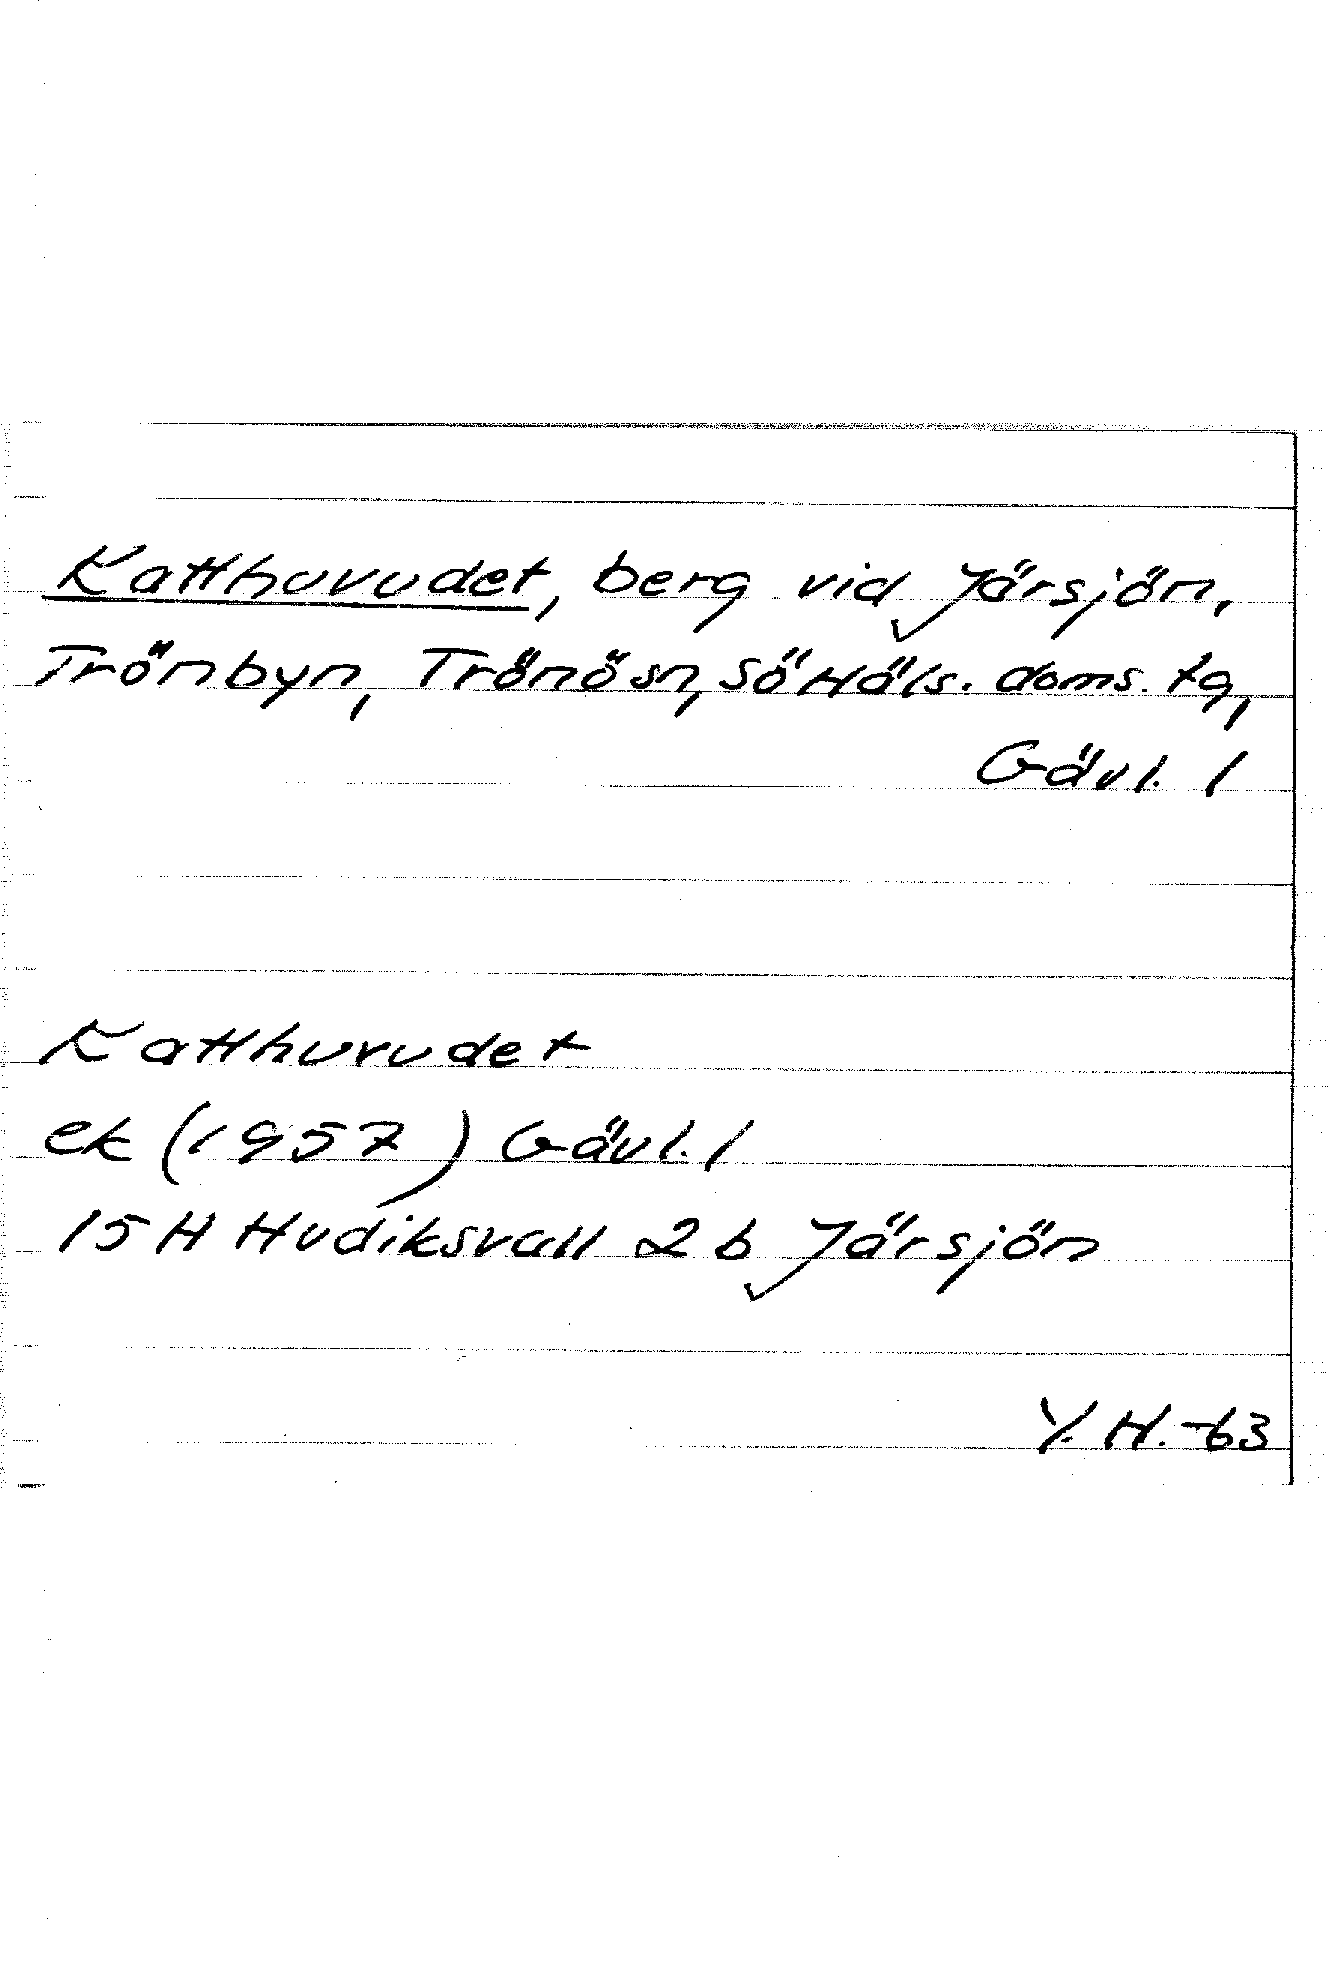 Katthuvudet, berg vid Järsjön,
Trönbyn, Trönö sn, Sö Häls. doms. tg,
Gävl. l
Katthuvudet
ek (1957) Gävl. l
15 H Hudiksvall 2 b Järsjön
Y. H. -63